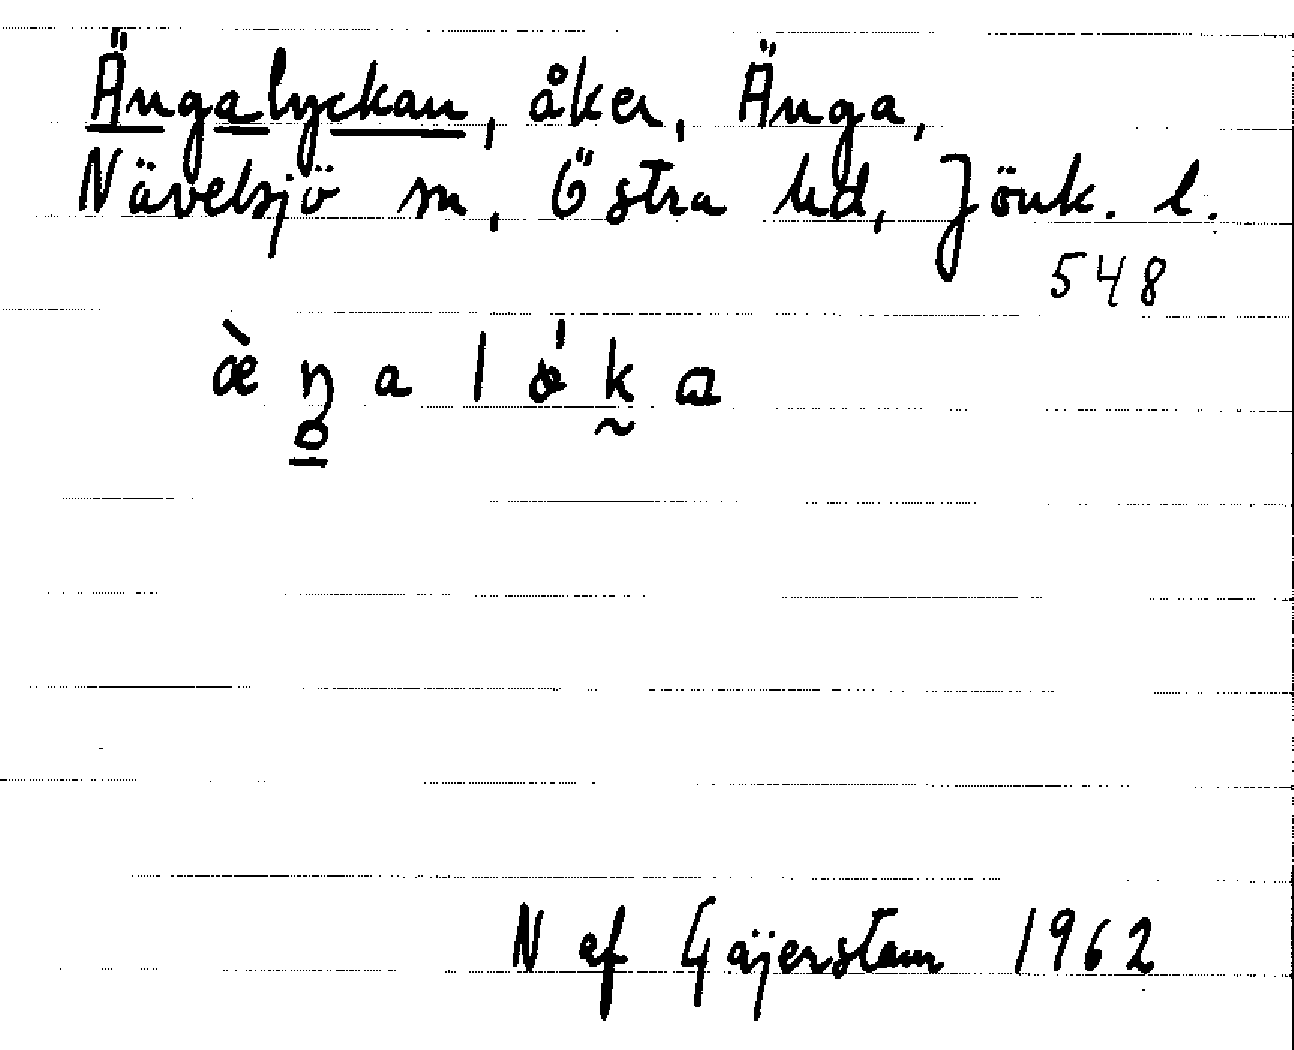 Ängalyckan, åker, Änga,
Nävelsjö sn, Östra hd, Jönk. l.
548
æ̀ ŋ a l ó k ɑ
N af Gäjerstam 1962